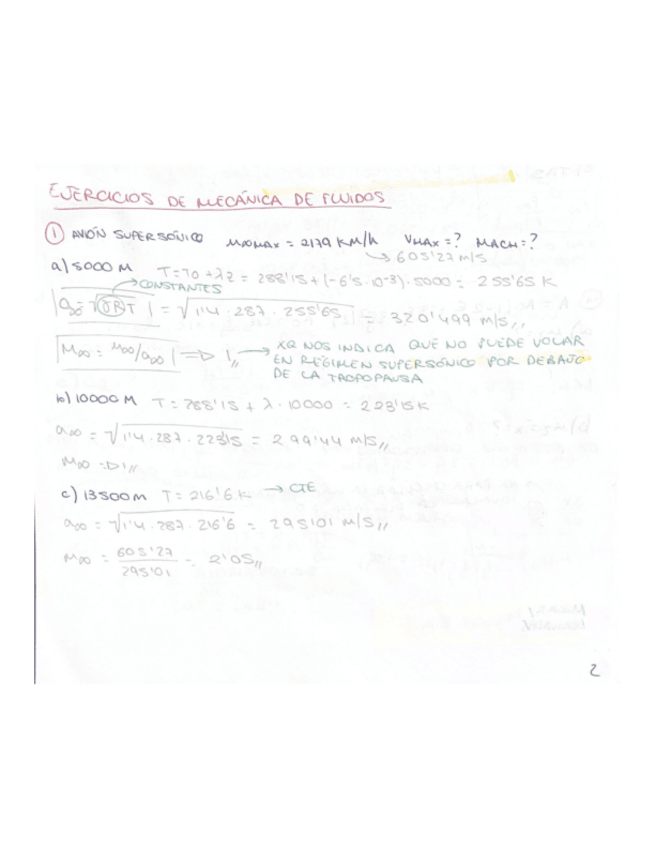 EJERCICIOS DE MECÁNICA DE FLUIDOS
① AVIÓN SUPERSÓNICO M∞MAX = 2179 KM/h VMAX=? MACH=?
→ 605'27 m/s
a) 5000 M T=T0+λz = 288'15+(-6'5·10⁻³)·5000 = 255'65 K
→ CONSTANTES
a∞ = √γRT = √1'4·287·255'65 = 320'499 m/s,,
M∞ = M∞/a∞ ⇒ 1,, → XQ NOS INDICA QUE NO PUEDE VOLAR
EN RÉGIMEN SUPERSÓNICO POR DEBAJO
DE LA TROPOPAUSA
b) 10000 M T = 288'15 + λ·10000 = 223'15 K
a∞ = √1'4·287·223'15 = 299'44 m/s,,
M∞ ⇒ 1,,
c) 13500 m T = 216'6 K → CTE
a∞ = √1'4·287·216'6 = 295'01 m/s,,
M∞ = 605'27/295'01 = 2'05,,
2